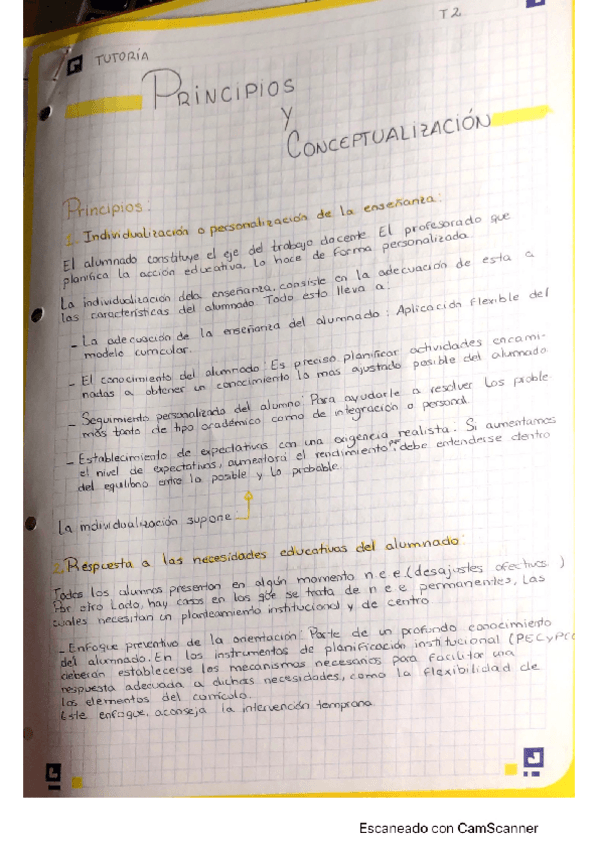 T2
TUTORÍA
PRINCIPIOS
Y
CONCEPTUALIZACIÓN
Principios:
1. Individualización o personalización de la enseñanza:
El alumnado constituye el eje del trabajo docente. El profesorado que
planifica la acción educativa, lo hace de forma personalizada.
La individualización de la enseñanza, consiste en la adecuación de esta a
las características del alumnado. Todo esto lleva a:
- La adecuación de la enseñanza del alumnado: Aplicación flexible del
modelo curricular.
- El conocimiento del alumnado: Es preciso planificar actividades encami-
nadas a obtener un conocimiento lo mas ajustado posible del alumnado
- Seguimiento personalizado del alumno: Para ayudarle a resolver los proble
mas tanto de tipo académico como de integración o personal.
- Establecimiento de expectativas con una exigencia realista. Si aumentamos
el nivel de expectativas, aumentará el rendimiento debe entenderse dentro
del equilibrio entre lo posible y lo probable.
La individualización supone
2. Respuesta a las necesidades educativas del alumnado:
Todos los alumnos presentan en algún momento n.e.e (desajustes afectivos )
Por otro lado, hay casos en los que se trata de n.e.e permanentes, las
cuales necesitan un planteamiento institucional y de centro.
- Enfoque preventivo de la orientación: Parte de un profundo conocimiento
del alumnado. En los instrumentos de planificación institucional (PEC y PCC
deberán establecerse los mecanismos necesarios para facilitar una
respuesta adecuada a dichas necesidades, como la flexibilidad de
los elementos del currículo.
Este enfoque, aconseja la intervención temprana.
Escaneado con CamScanner